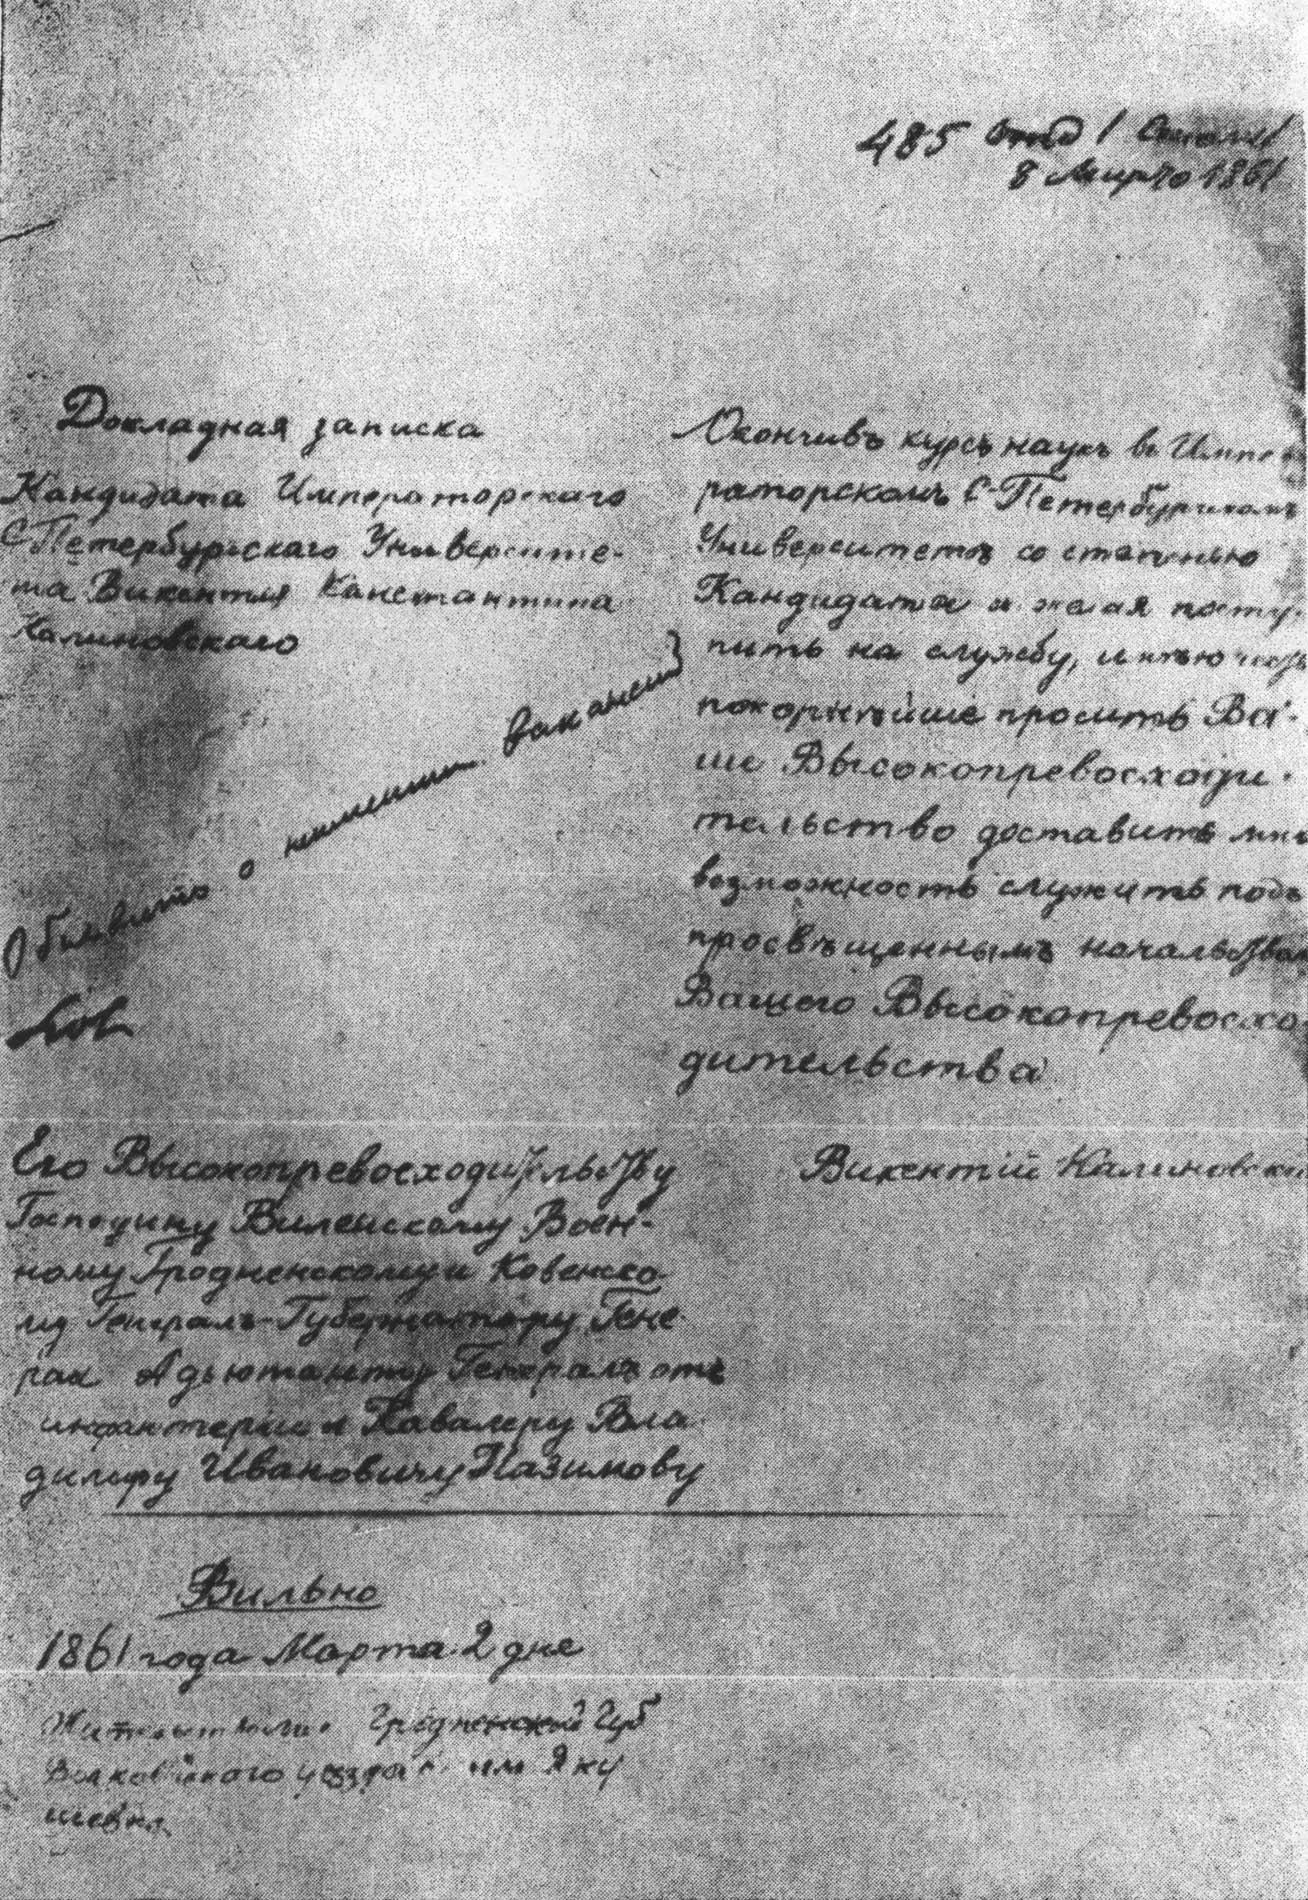 485
8 Марта 1861
Докладная записка
Кандидата Императорскаго
С-Петербургскаго Университе-
та Викентия Константина
Калиновскаго
Объявить о неимении ваканси
Окончивъ курсъ наукъ въ Импе
раторскомъ С-Петербургскомъ
Университетѣ со степенью
Кандидата и желая посту-
пить на службу, имѣю честь
покорнѣйше просить Ва-
ше Высокопревосходи-
тельство доставить мнѣ
возможность служить подъ
просвѣщеннымъ
Вашего Высокопревосхо
дительства
Викентій Калиновскі
Его Высокопревосходительству
Господину Виленскому Воен-
ному Гродненскому и Ковенско-
му Генералъ-Губернатору Гене-
рал Адьютанту Генералъ отъ
инфантеріи и Кавалеру Вла-
димиру Ивановичу Назимову
Вильно
1861 года Марта 2 дня
Гродненской Губ
уезда им Яку
шевка